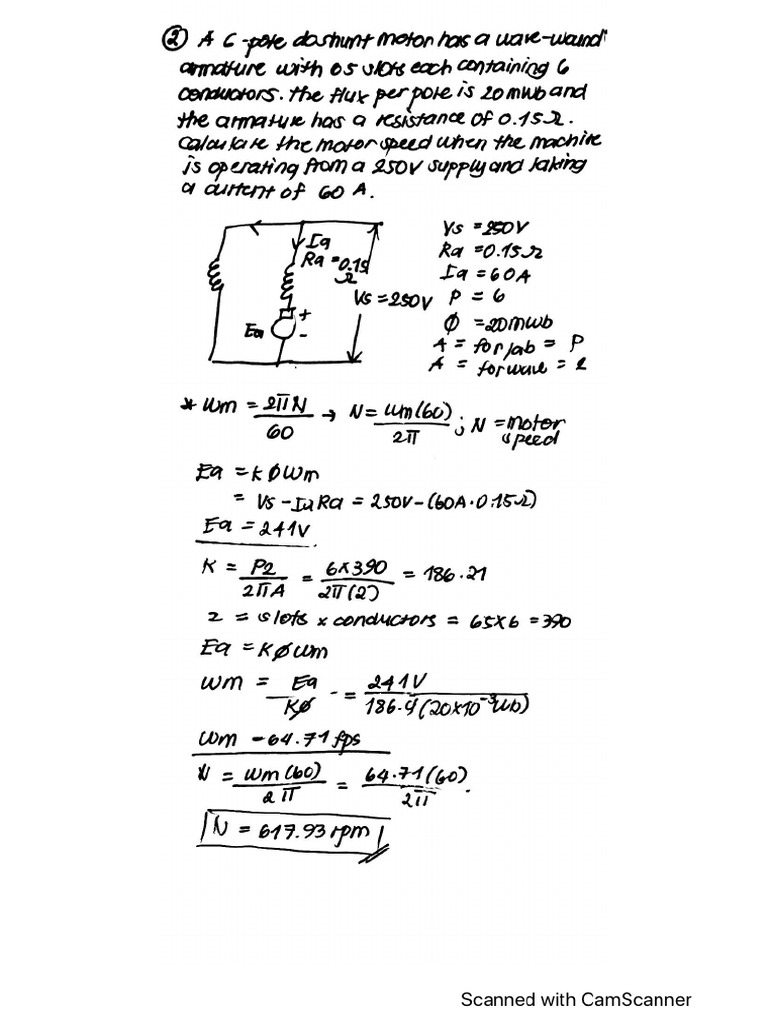 ② A 6-pole dc shunt motor has a wave-wound
armature with 65 slots each containing 6
conductors. the flux per pole is 20mwb and
the armature has a resistance of 0.15Ω.
Calculate the motor speed when the machine
is operating from a 250V supply and taking
a current of 60 A.
Ia
Ra = 0.15
Ω
Vs = 250V
Ea
+
-
Vs = 250V
Ra = 0.15Ω
Ia = 60A
P = 6
Ø = 20mwb
A = for lab = P
A = for wave = 2
* Wm = 2πN/60 → N = Wm(60)/2π ; N = motor
speed
Ea = KØWm
= Vs - IaRa = 250V - (60A · 0.15Ω)
Ea = 241V
K = PZ/2πA = 6x390/2π(2) = 186.21
Z = slots x conductors = 65x6 = 390
Ea = KØWm
Wm = Ea/KØ = 241V/186.4(20x10⁻³Wb)
Wm = 64.71 fps
N = Wm(60)/2π = 64.71(60)/2π
N = 617.93 rpm
Scanned with CamScanner